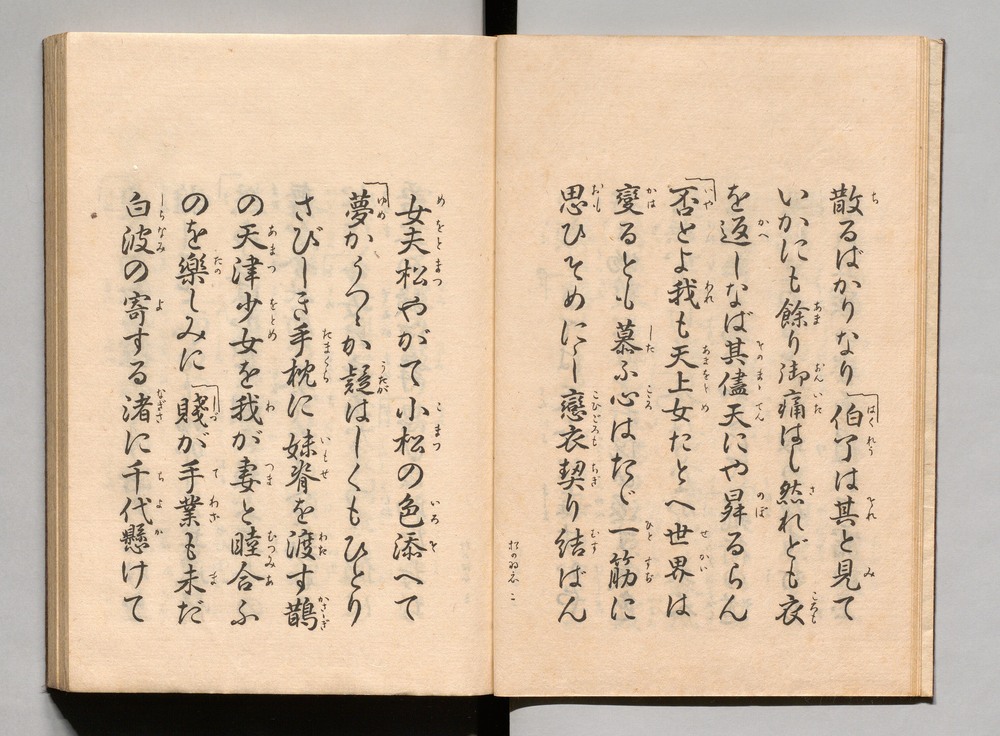 散るばかりなり「伯了は其と見て
いかにも餘り御痛はし然れども衣
を返しなば其儘天にや昇るらん
「否とよ我も天上女たとへ世界は
變るとも慕ふ心はたゞ一筋に
思ひそめにし戀衣契り結ばん
女夫松やがて小松の色添へて
「夢かうつゝか疑はしくもひとり
さびしき手枕に妹脊を渡す鵲
の天津少女を我が妻と睦合ふ
のを樂しみに「賤が手業も未だ
白波の寄する渚に千代懸けて